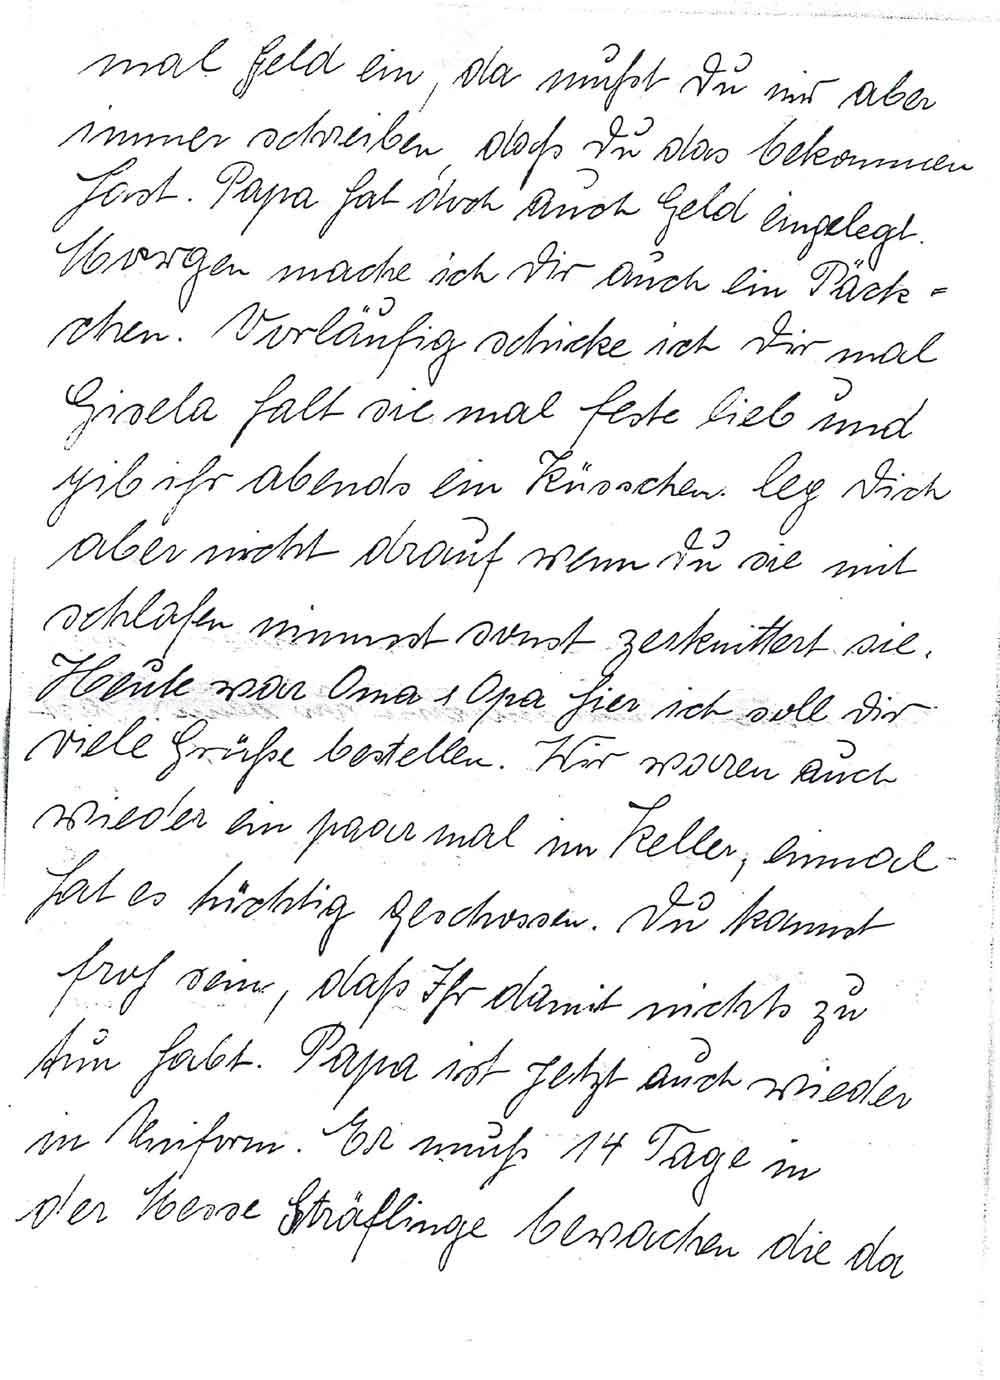 mal Geld ein, da mußt Du mir aber
immer schreiben, daß Du das bekommen
hast. Papa hat doch auch Geld eingelegt.
Morgen mache ich Dir auch ein Päck=
chen. Vorläufig schicke ich Dir mal
Gisela halt sie mal feste lieb und
gib ihr abends ein Küsschen. leg Dich
aber nicht drauf wenn Du sie mit
schlafen nimmst sonst zerknittert sie.
Heute war Oma & Opa hier ich soll Dir
viele Grüße bestellen. Wir waren auch
wieder ein paar mal im Keller, einmal
hat es tüchtig geschossen. Du kannst
froh sein, daß Ihr damit nichts zu
tun habt. Papa ist jetzt auch wieder
in Uniform. Er muß 14 Tage in
der Messe Sträflinge bewachen die da